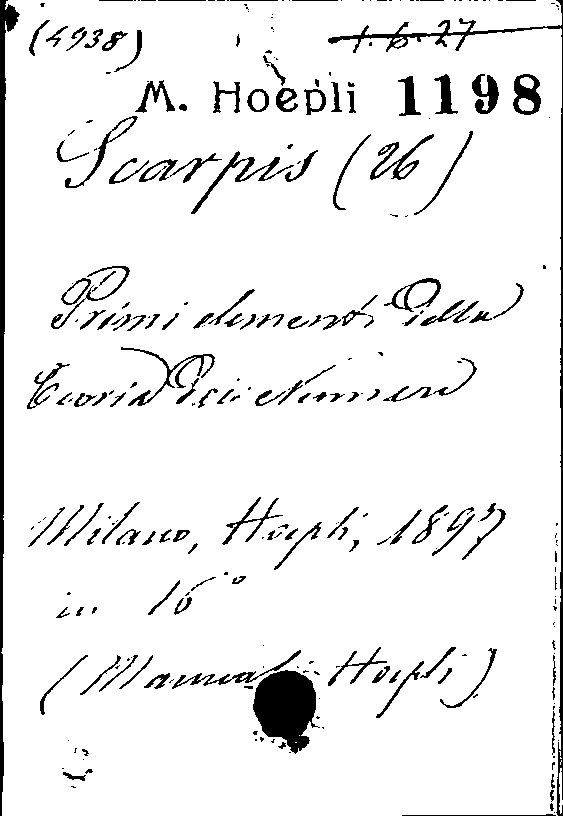 (4938) 1.6.27
M. Hoepli 1198
Scarpis (26)
Primi elementi della
Teoria dei Numeri
Milano, Hoepli, 1897
in 16°
(Manuali Hoepli)